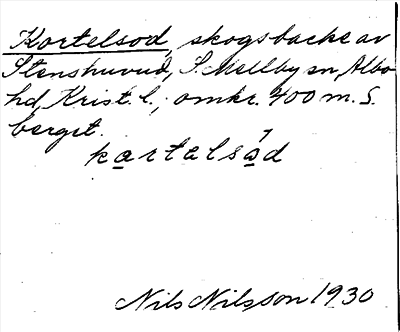 Kortelsod, skogsbacke av
Stenshuvud, S. Mellby sn, Albo
hd, Krist. l., omkr. 400 m. S.
berget.
kartelsǻd
Nils Nilsson 1930